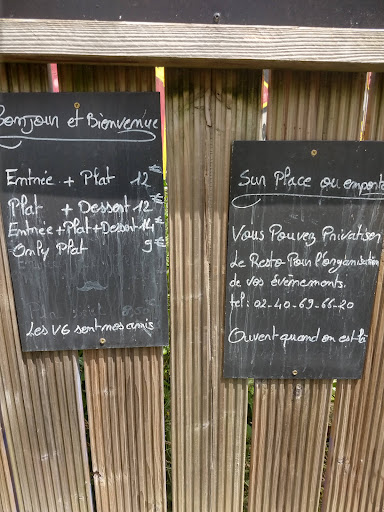 Bonjour et Bienvenue
Entrée + Plat 12€
Plat + Dessert 12€
Entrée + Plat + Dessert 14€
Only Plat 9€
Les VG sont nos amis
Sur Place ou emporté
Vous Pouvez Privatiser
Le Resto Pour l'organisation
de vos évènements.
tel: 02-40-69-66-20
Ouvert quand on est là